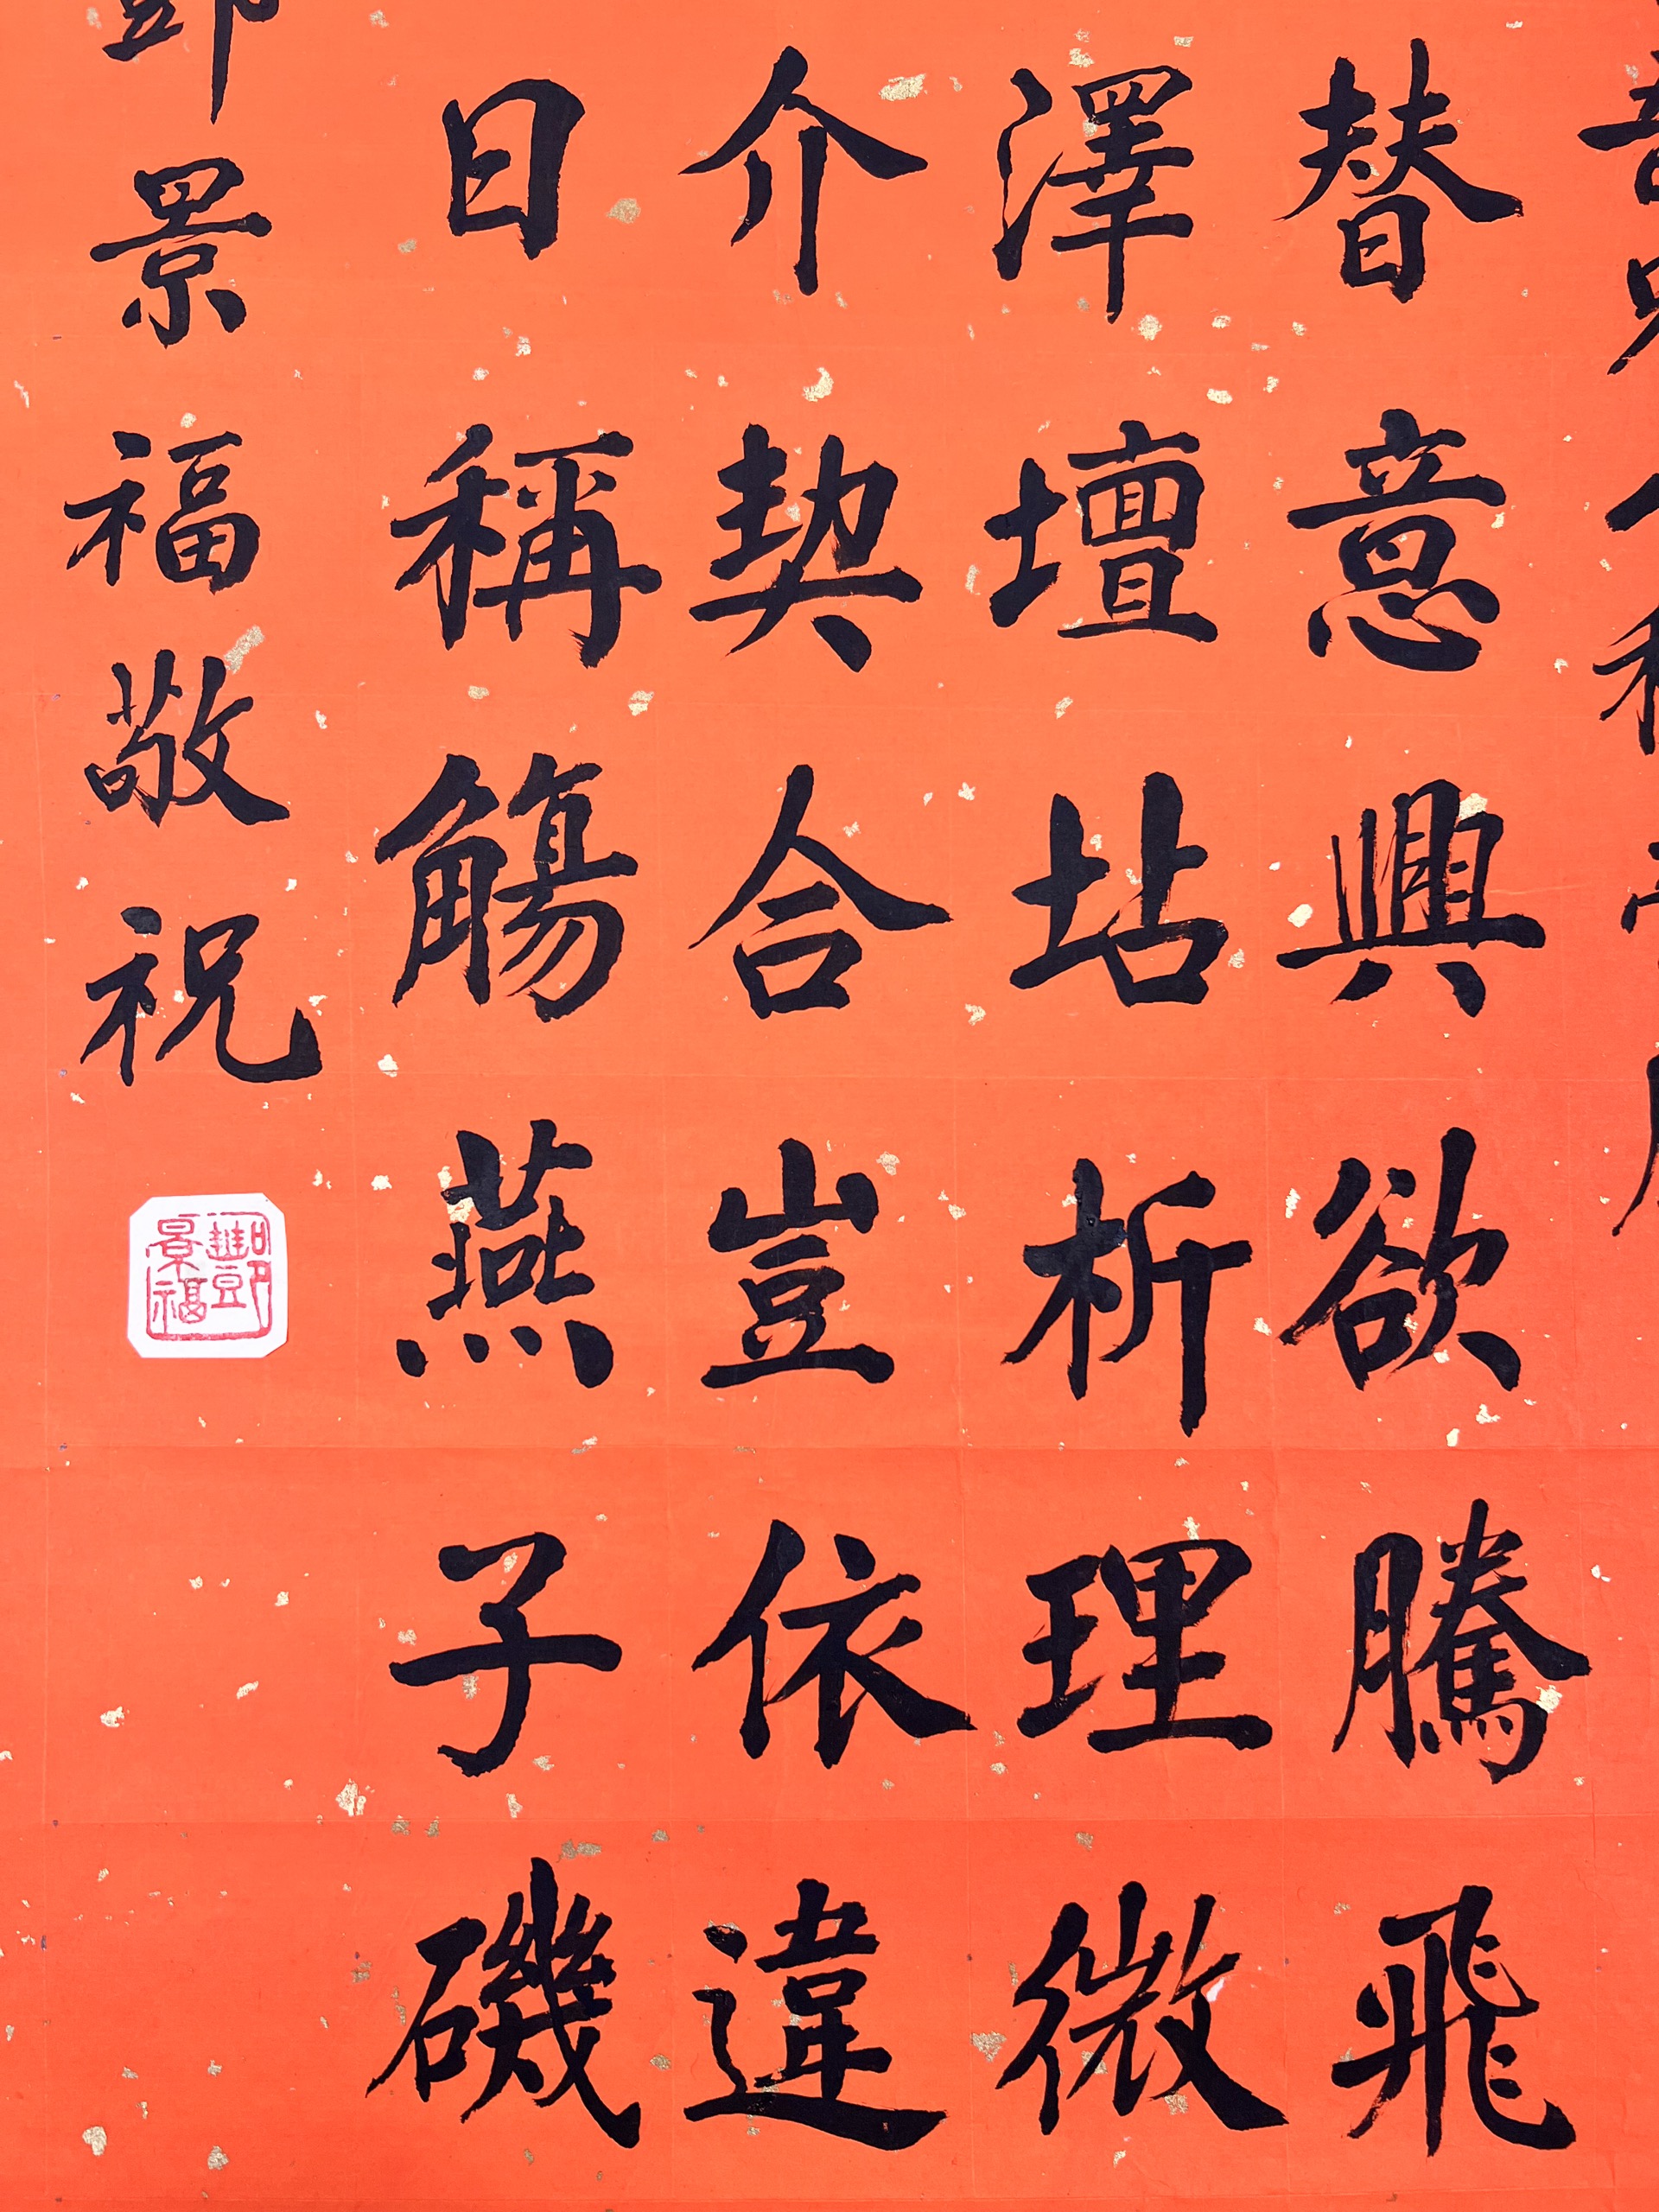 替意興欲騰飛
澤壇坫析理微
介契合豈依違
日稱觴燕子磯
鄧景福敬祝
鄧景福